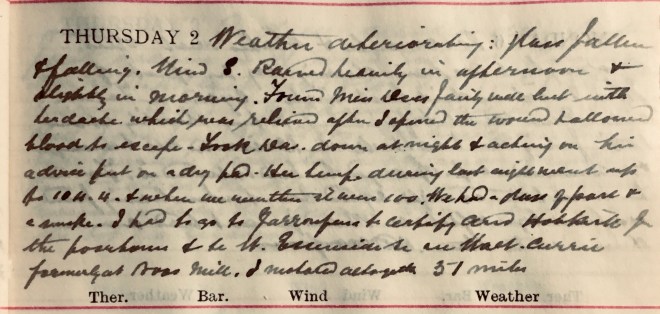 THURSDAY 2 Weather deteriorating: glass fallen
& falling. Wind S. Rained heavily in afternoon &
slightly in morning. Found Miss fairly well but with
headache which was relieved after I opened the wound & allowed
blood to escape - Took Das. down at night & acting on his
advice put on a dry pad. Her temp during last night went up
to 104.4. & when we it was 100. We had a glass of port &
a smoke. I had to go to to certify
the poorhouse & to W.
formerly at Ross Mill. I motored altogether 51 miles
Ther. Bar. Wind Weather